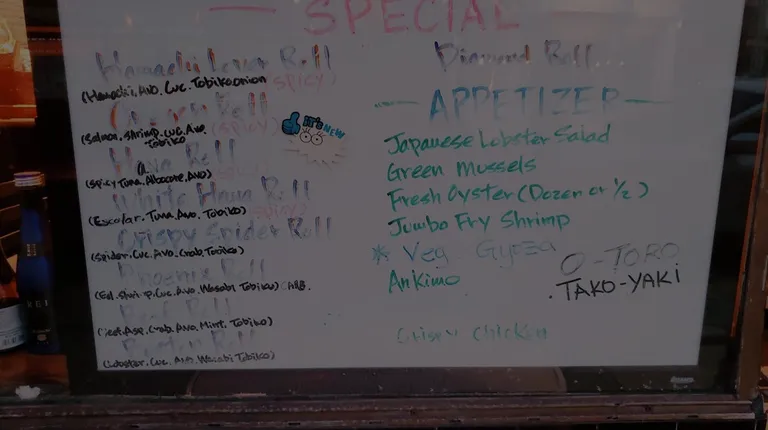 SPECIAL
Hamachi Lover Roll
(Hamachi, Avo, Cuc, Tobiko, onion SPICY
Roll
(Salmon, shrimp, Cuc, Avo, Tobiko SPICY
IT'S NEW
Roll
(Spicy Tuna, Albacore, Avo)
White Hana Roll
(Escolar, Tuna, Avo, Tobiko) SPICY
Crispy Spider Roll
(Spider, Cuc, Avo, Crab, Tobiko)
Phoenix Roll
Cuc, Avo, Wasabi Tobiko)
Roll
Asp, Crab, Avo, Mint, Tobiko)
Roll
(Lobster, Cuc, Avo, Wasabi Tobiko)
Diamond Roll
APPETIZER
Japanese Lobster Salad
Green Mussels
Fresh Oyster (Dozen or 1/2)
Jumbo Fry Shrimp
* Veg. Gyoza
Ankimo
O-TORO
.TAKO-YAKI
Crispy Chicken